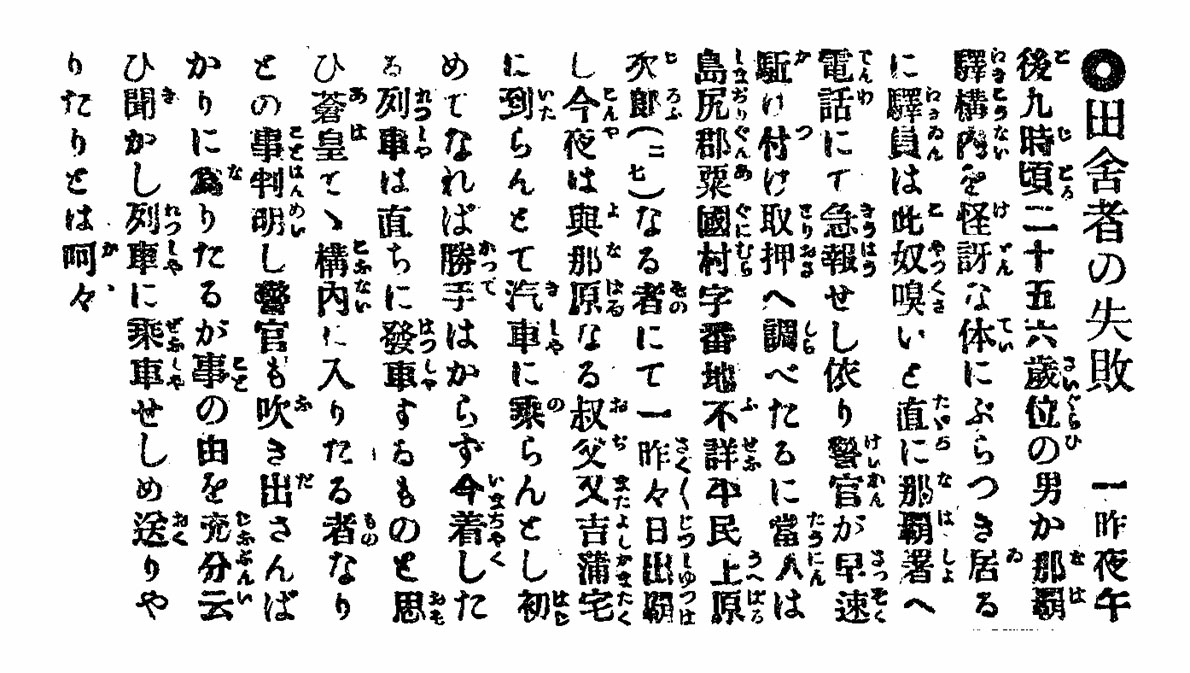 ◉田舍者の失敗　一昨夜午
後九時頃二十五六歲位の男か那覇
驛構內を怪訝な体にぶらつき居る
に驛員は此奴嗅いと直に那覇署へ
電話にて急報せし依り警官が早速
駈け村け取押へ調べたるに當人は
島尻郡粟國村字番地不詳平民上原
次郎(二七)なる者にて一昨々日出覇
し今夜は與那原なる叔父又吉蒲宅
に到らんとて汽車に乘らんとし初
めてなれば勝手はからず今着した
る列車は直ちに發車するものと思
ひ蒼皇てゝ構內に入りたる者なり
との事判明し警官も吹き出さんば
かりに爲りたるが事の由を充分云
ひ聞かし列車に乘車せしめ送りや
りたりとは呵々